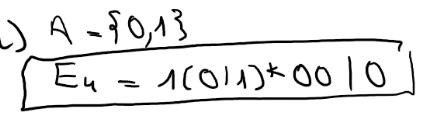 c) A = {0,1}
E₄ = 1(0|1)*00 | 0